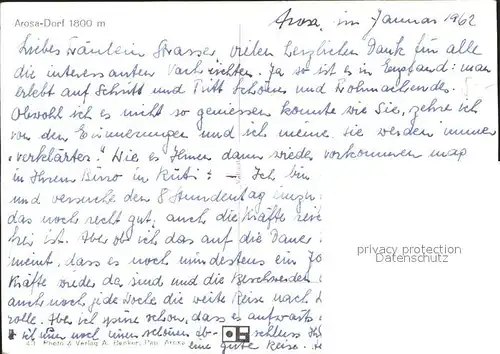 Arosa-Dorf 1800 m
Arosa, im Januar 1962
Liebes Fräulein Strasser, vielen herzlichen Dank für alle
die interessanten Nachrichten. Ja so ist es in : man
erlebt auf Schritt und Tritt Schönes und Wohltuendes.
Obwohl ich es nicht so geniessen konnte wie Sie, zehre ich
von den Erinnerungen und ich meine sie werden immer
„verklärter". Wie es Ihnen dann wieder vorkommen mag
in Ihrem Büro in Rüti? — Ich bin
und versuche den 8 Stundentag
das noch recht gut, auch die Kräfte
frei ist. Aber ob ich das auf die Dauer
meint, dass es noch mindestens ein
Kräfte wieder da sind und die Beschwerden
auch noch jede Woche die weite Reise nach
rolle. Aber ich spüre schon, dass es aufwärts
ich nur noch einen schönen ab- schluss
Photo & Verlag A. Arosa
eine gute Reise.
privacy protection
Datenschutzbalken